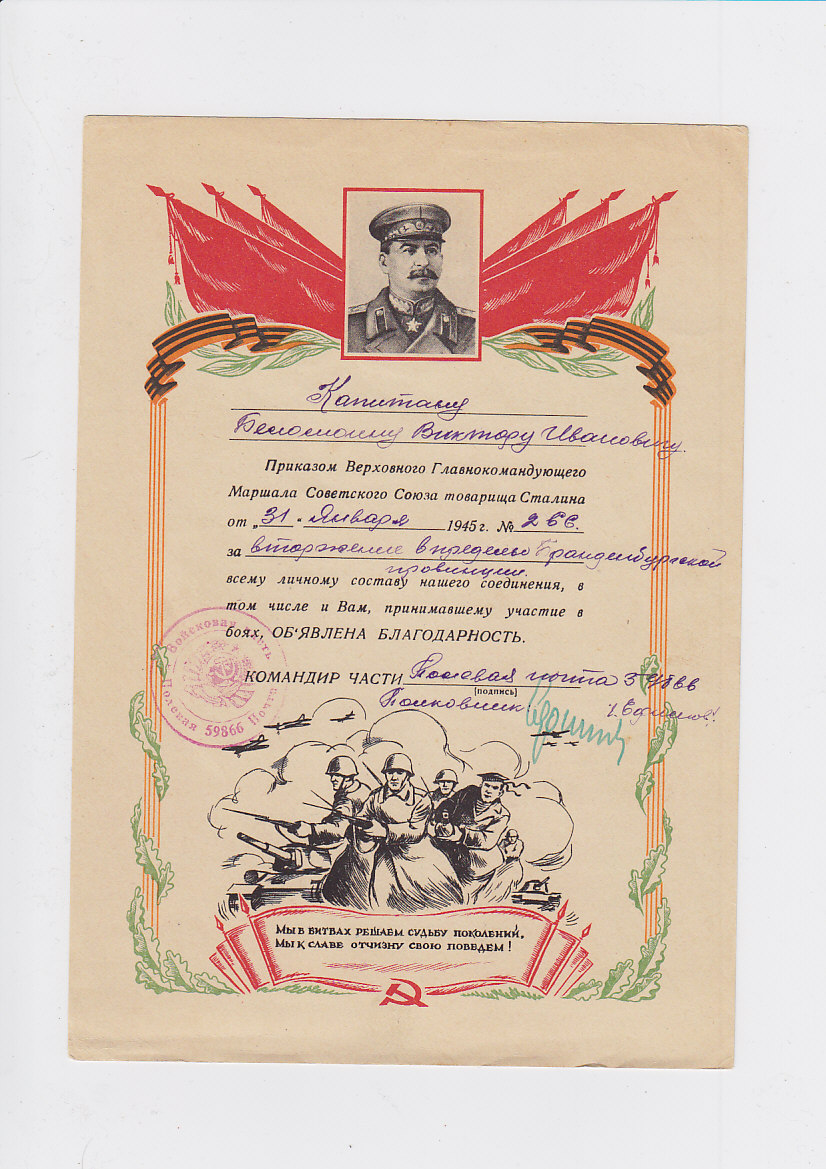 Капитану
Виктору Ивановичу.
Приказом Верховного Главнокомандующего
Маршала Советского Союза товарища Сталина
от „31" Января 1945 г. № 266.
за вторжение в пределы Бранденбургской
провинции.
всему личному составу нашего соединения, в
том числе и Вам, принимавшему участие в
боях, ОБ'ЯВЛЕНА БЛАГОДАРНОСТЬ.
Войсковая часть
Полевая 59866 Почта
КОМАНДИР ЧАСТИ Полевая почта 59866
[подпись]
Полковник
МЫ В БИТВАХ РЕШАЕМ СУДЬБУ ПОКОЛЕНИЙ,
МЫ К СЛАВЕ ОТЧИЗНУ СВОЮ ПОВЕДЕМ!